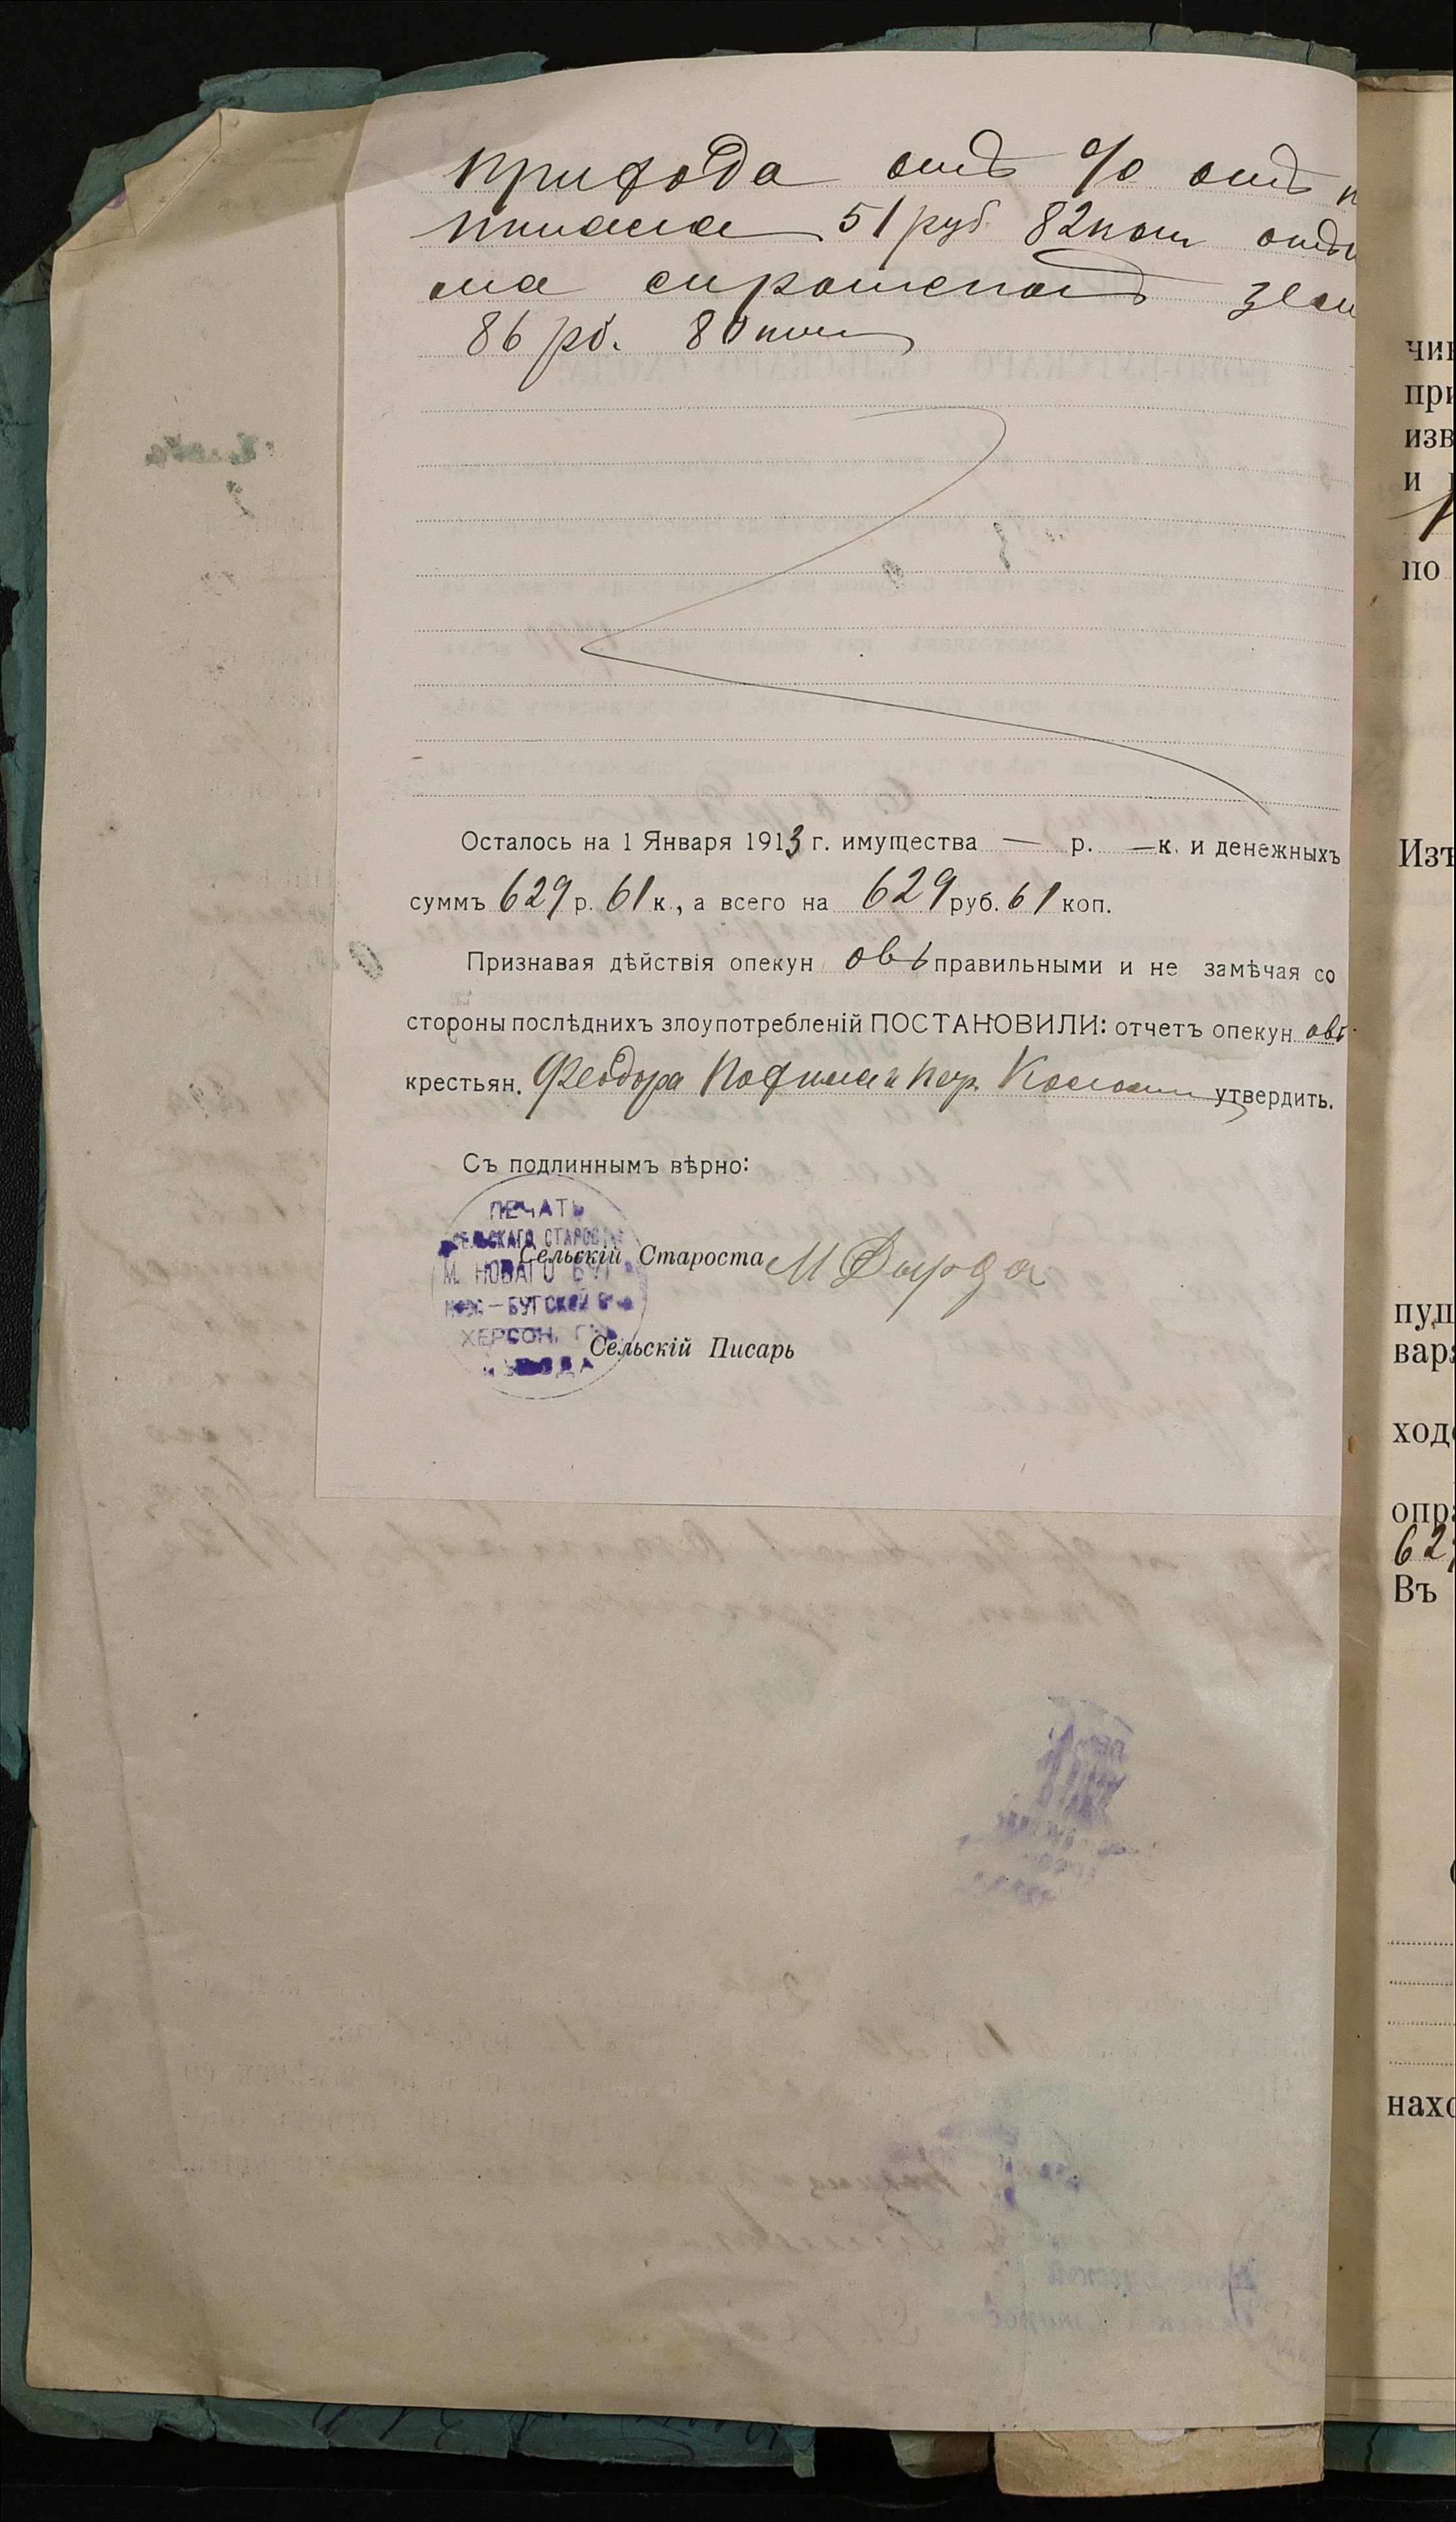 прихода отъ % отъ к
питала 51 руб. 82 коп отдч
ма сиротской земл
86 рб. 80 коп
Осталось на 1 Января 1913 г. имущества — р. — к. и денежныхъ
суммъ 629 р. 61 к., а всего на 629 руб. 61 коп.
Признавая дѣйствія опекун овъ правильными и не замѣчая со
стороны послѣднихъ злоупотребленій ПОСТАНОВИЛИ: отчетъ опекун овъ
крестьян. Феодора и утвердить.
Съ подлиннымъ вѣрно:
ПЕЧАТЬ
СЕЛЬСКАГО СТАРОСТЫ
М. НОВАГО БУГА
НОВО-БУГСКОЙ В
ХЕРСОН. Г.
УѢЗДА
Сельскій Староста М Дырда
Сельскій Писарь
чин
при
изв
и
по
Изъ
пущ
вар
ходо
опра
629
Въ
нахо